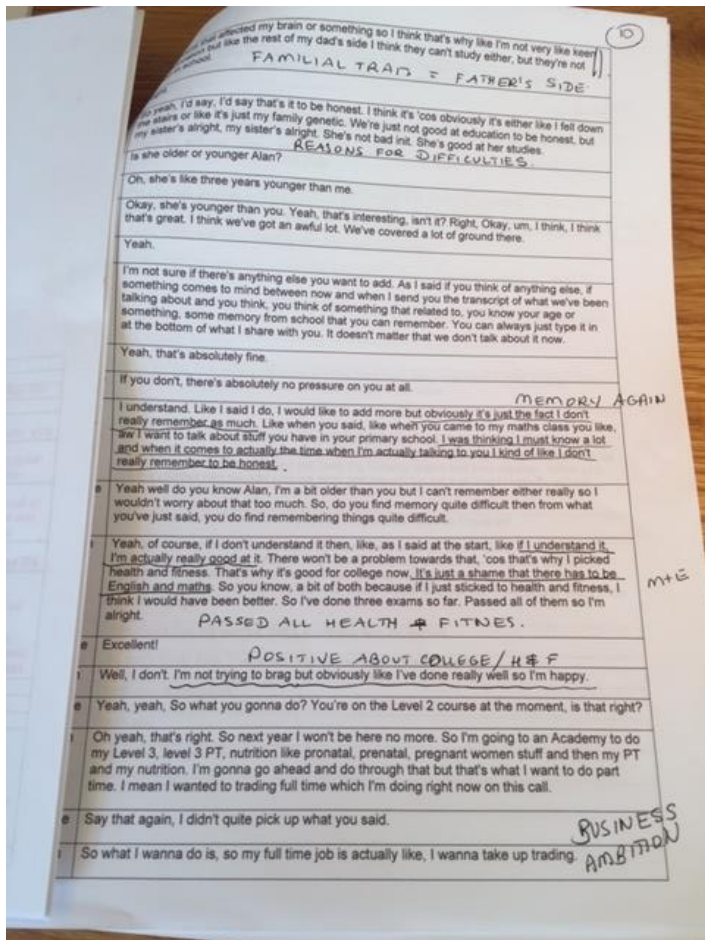 10
affected my brain or something so I think that's why like I'm not very like keen
but like the rest of my dad's side I think they can't study either, but they're not
school.
FAMILIAL TRAD = FATHER'S SIDE.
yeah, I'd say, I'd say that's it to be honest. I think it's 'cos obviously it's either like I fell down
the stairs or like it's just my family genetic. We're just not good at education to be honest, but
my sister's alright, my sister's alright. She's not bad init. She's good at her studies.
REASONS FOR DIFFICULTIES.
Is she older or younger Alan?
Oh, she's like three years younger than me.
Okay, she's younger than you. Yeah, that's interesting, isn't it? Right, Okay, um, I think, I think
that's great. I think we've got an awful lot. We've covered a lot of ground there.
Yeah.
I'm not sure if there's anything else you want to add. As I said if you think of anything else, if
something comes to mind between now and when I send you the transcript of what we've been
talking about and you think, you think of something that related to, you know your age or
something, some memory from school that you can remember. You can always just type it in
at the bottom of what I share with you. It doesn't matter that we don't talk about it now.
Yeah, that's absolutely fine.
If you don't, there's absolutely no pressure on you at all.
MEMORY AGAIN
I understand. Like I said I do, I would like to add more but obviously it's just the fact I don't
really remember as much. Like when you said, like when you came to my maths class you like,
aw I want to talk about stuff you have in your primary school, I was thinking I must know a lot
and when it comes to actually the time when I'm actually talking to you I kind of like I don't
really remember to be honest.
e Yeah well do you know Alan, I'm a bit older than you but I can't remember either really so I
wouldn't worry about that too much. So, do you find memory quite difficult then from what
you've just said, you do find remembering things quite difficult.
Yeah, of course, if I don't understand it then, like, as I said at the start, like if I understand it,
I'm actually really good at it. There won't be a problem towards that, 'cos that's why I picked
health and fitness. That's why it's good for college now. It's just a shame that there has to be
English and maths. So you know, a bit of both because if I just sticked to health and fitness, I
think I would have been better. So I've done three exams so far. Passed all of them so I'm
alright.
M+E
PASSED ALL HEALTH & FITNES.
e Excellent!
POSITIVE ABOUT COLLEGE/H&F
Well, I don't. I'm not trying to brag but obviously like I've done really well so I'm happy.
e Yeah, yeah, So what you gonna do? You're on the Level 2 course at the moment, is that right?
Oh yeah, that's right. So next year I won't be here no more. So I'm going to an Academy to do
my Level 3, level 3 PT, nutrition like pronatal, prenatal, pregnant women stuff and then my PT
and my nutrition. I'm gonna go ahead and do through that but that's what I want to do part
time. I mean I wanted to trading full time which I'm doing right now on this call.
e Say that again, I didn't quite pick up what you said.
BUSINESS
AMBITION
So what I wanna do is, so my full time job is actually like, I wanna take up trading.